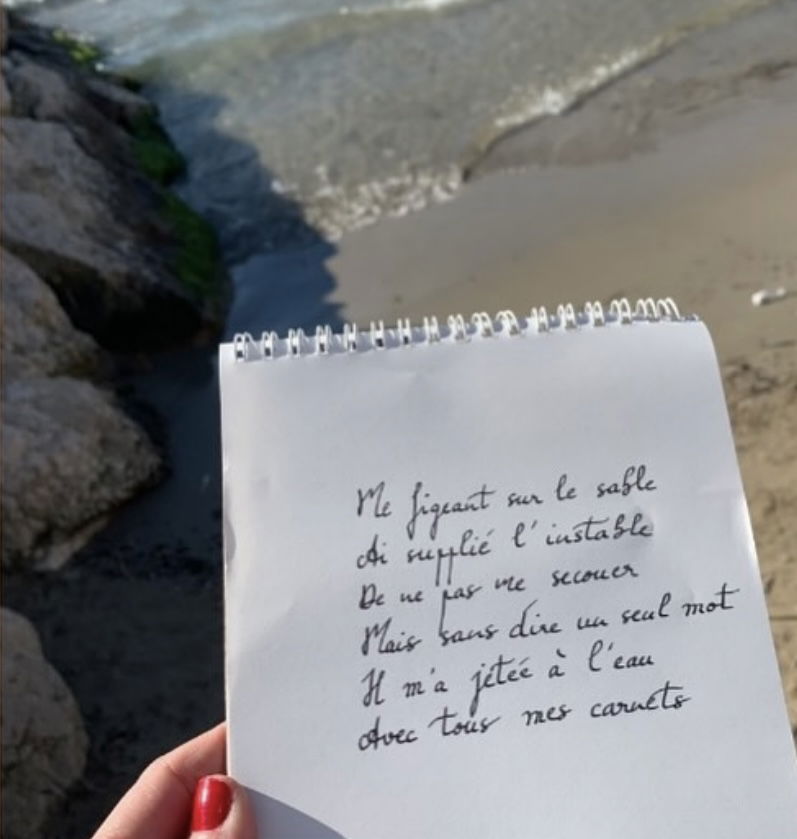 Me figeant sur le sable
Ai supplié l'instable
De ne pas me secouer
Mais sans dire un seul mot
Il m'a jetée à l'eau
Avec tous mes carnets